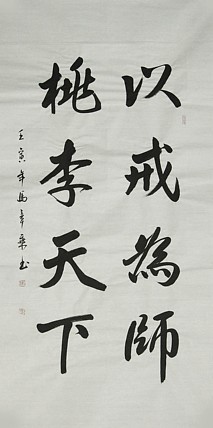 以戒為師
桃李天下
壬寅年馬彥乘书